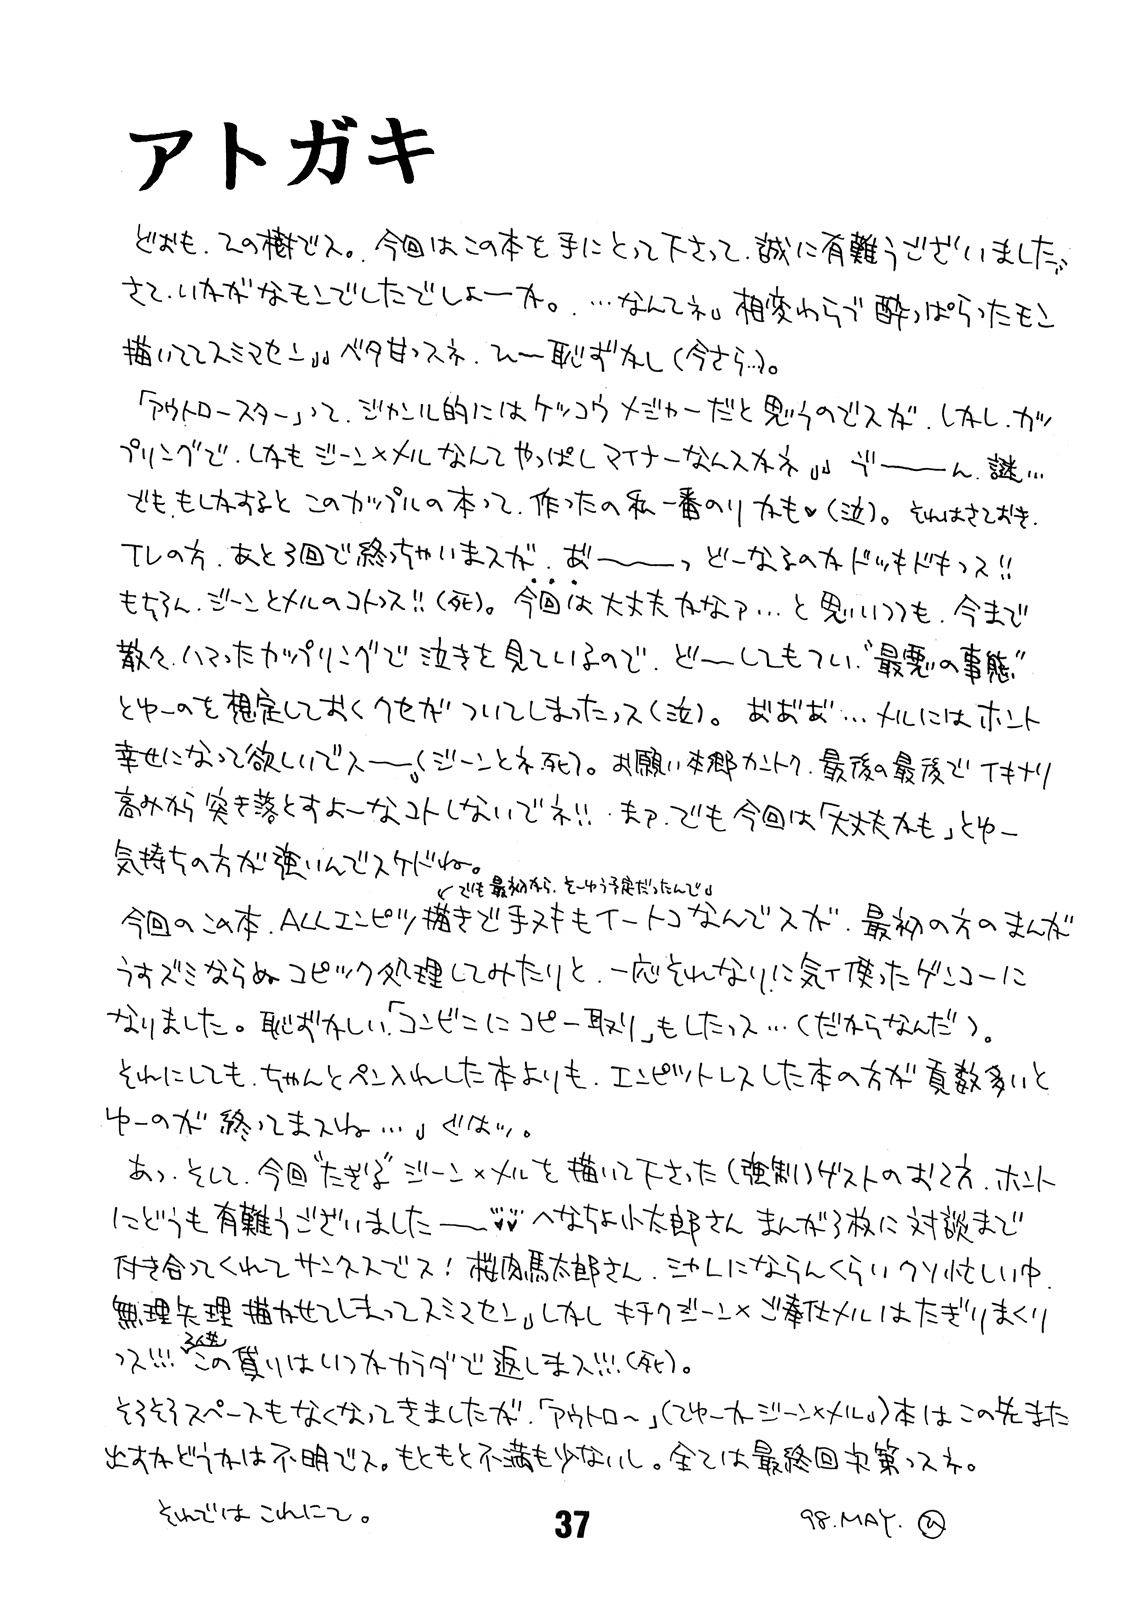 アトガキ
どおも、ひの樹でス。今回はこの本を手にとって下さって、誠に有難うございました。
さて、いかがなモンでしたでしょーか。…なんてネ」相変わらず酔っぱらったモン
描いててスミマセン」」ベタ甘っスネ、ひ〜恥ずかし(今さら…)。
「アウトロースター」って、ジャンル的にはケッコウメジャーだと思うのでスが、しかし、カッ
プリングで、しかもジーン×メルなんてやっぱしマイナーなんスかネ」」ゔ――ん、謎…
でも、もしかすると このカップルの本って、作ったの私一番のりかも♥(泣)。それはさておき、
TVの方、あと3回で終っちゃいまスが、あ゛――っ どーなるのかドッキドキっス!!
もちろん、ジーンとメルのコトっス!!(死)。今回は大丈夫かなァ…と思いつつも、今まで
散々、ハマったカップリングで泣きを見ているので、ど〜してもつい、“最悪の事態”
とゆーのを想定しておくクセがついてしまったっス(泣)。あ゛あ゛あ゛…メルにはホント
幸せになって欲しいでス――」(ジーンとネ、死)。お願い本郷カントク、最後の最後でイキナリ
高みから突き落とすよ〜なコトしないでネ!!まァ、でも今回は「大丈夫かも」とゆー
気持ちの方が強いんでスケドね。
↙でも最初から、そーゆう予定だったんで」
今回のこの本、ALLエンピツ描きで手ヌキもイートコなんでスが、最初の方のまんが
うすズミならぬコピック処理してみたりと、一応それなりに気ィ使ったゲンコーに
なりました。恥ずかしい、「コンビニにコピー取り」もしたっス…(だからなんだ)。
それにしても、ちゃんとペン入れした本よりも、エンピツトレスした本の方が頁数多いと
ゆーのが 終ってまスね…」ぐはッ。
あっ、そして、今回“たぎる”ジーン×メルを描いて下さった(強制)ゲストのお2方、ホント
にどうも有難うございました――♥♥へなちょ小太郎さん まんが3枚に対談まで
付き合ってくれてサンクスでス!桜肉馬太郎さん、シャレにならんくらいクソ忙しい中、
無理矢理描かせてしまってスミマセン」しかし キチクジーン×ご奉仕メルはたぎりまくり
っス!!!この借りはいつかカラダで返しまス!!!(死)。
そろそろスペースもなくなってきましたが、「アウトロ〜」(てゆーかジーン×メル」)本はこの先また
出すかどうかは不明でス。もともと不満も少ないし。全ては最終回次第っスネ。
それでは これにて。
98.MAY. ひ
37